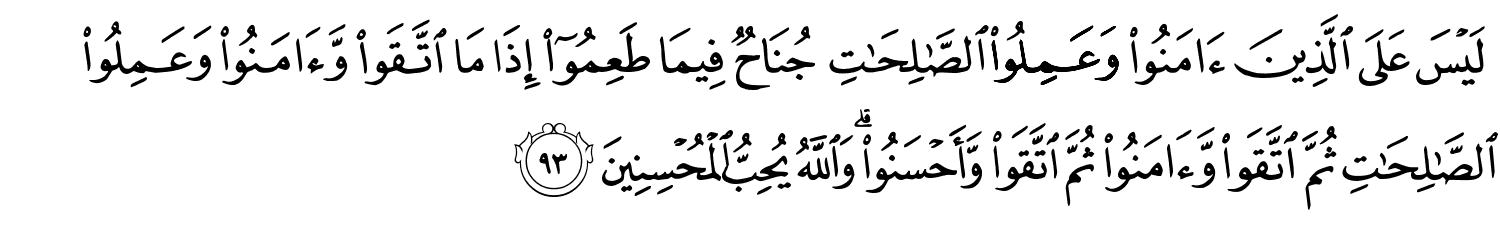 لَيۡسَ عَلَى ٱلَّذِينَ ءَامَنُواْ وَعَمِلُواْ ٱلصَّٰلِحَٰتِ جُنَاحٞ فِيمَا طَعِمُوٓاْ إِذَا مَا ٱتَّقَواْ وَّءَامَنُواْ وَعَمِلُواْ
ٱلصَّٰلِحَٰتِ ثُمَّ ٱتَّقَواْ وَّءَامَنُواْ ثُمَّ ٱتَّقَواْ وَّأَحۡسَنُواْۗ وَٱللَّهُ يُحِبُّ ٱلۡمُحۡسِنِينَ ٩٣